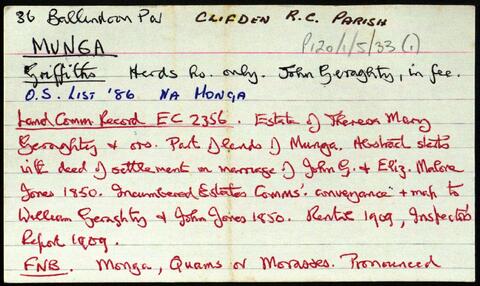 36 Ballindoon Par CLIFDEN R.C. PARISH
P120/1/5/33 (1)
MUNGA
Griffiths Herds Ho. only. John Geraghty, in fee.
O.S. LIST '86 NA MONGA
Land Comm Record EC 2356. Estate of Theresa Mary
Geraghty & ors. Part of lands of Munga. Abstract states
deed of settlement on marriage of John G. & Eliz. Malone
Jones 1850. Incumbered Estates Comms'. conveyance + map to
William Geraghty & John Jones 1850. Rental 1909, Inspectors
Report 1909.
FNB. Monga, Quams or Morasses. Pronounced